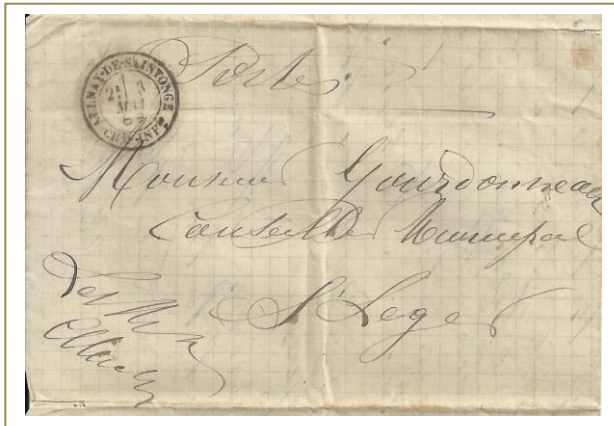 AULNAY-DE-SAINTONGE
3
MAI
CHTE-INFRE
Poste
Monsieur Gourdonneau
Conseiller Municipal
St Leger